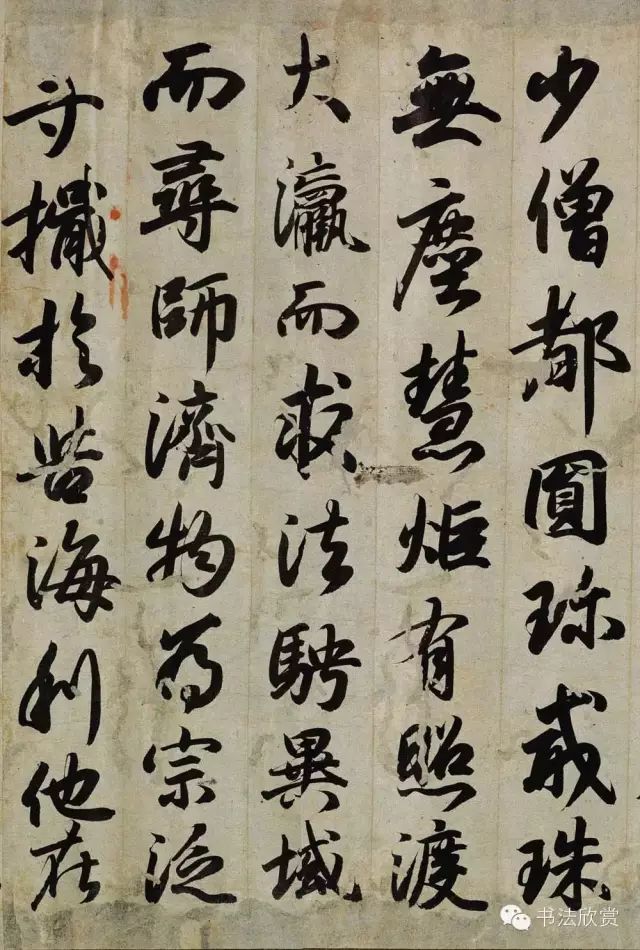 少僧都圓珎戒珠
無塵慧炬有照渡
大瀛而求法騁異域
而尋師濟物為宗泛
寸檝於苦海利他在
书法欣赏